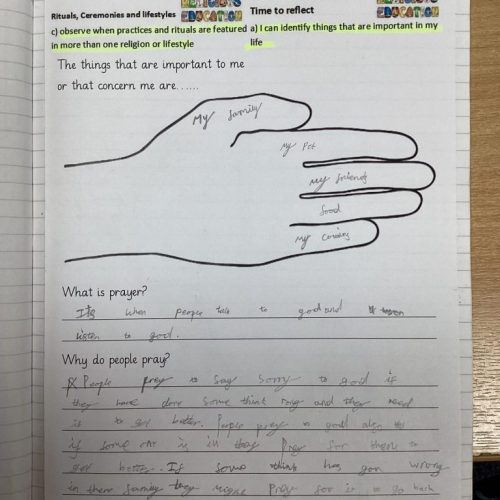 RELIGIOUS
EDUCATION
Rituals, Ceremonies and lifestyles
c) observe when practices and rituals are featured
in more than one religion or lifestyle
Time to reflect
a) I can identify things that are important in my
life
The things that are important to me
or that concern me are......
My family
My Pet
My friends
food
My
What is prayer?
Its when people talk to god and
listen to god.
Why do people pray?
People pray to say sorry to god if
they have done some think rong and they need
it to get better. People pray to god also
if some one is in they Pray for them to
get better. If some think has gon wrong
in there family they might Pray for it to go back